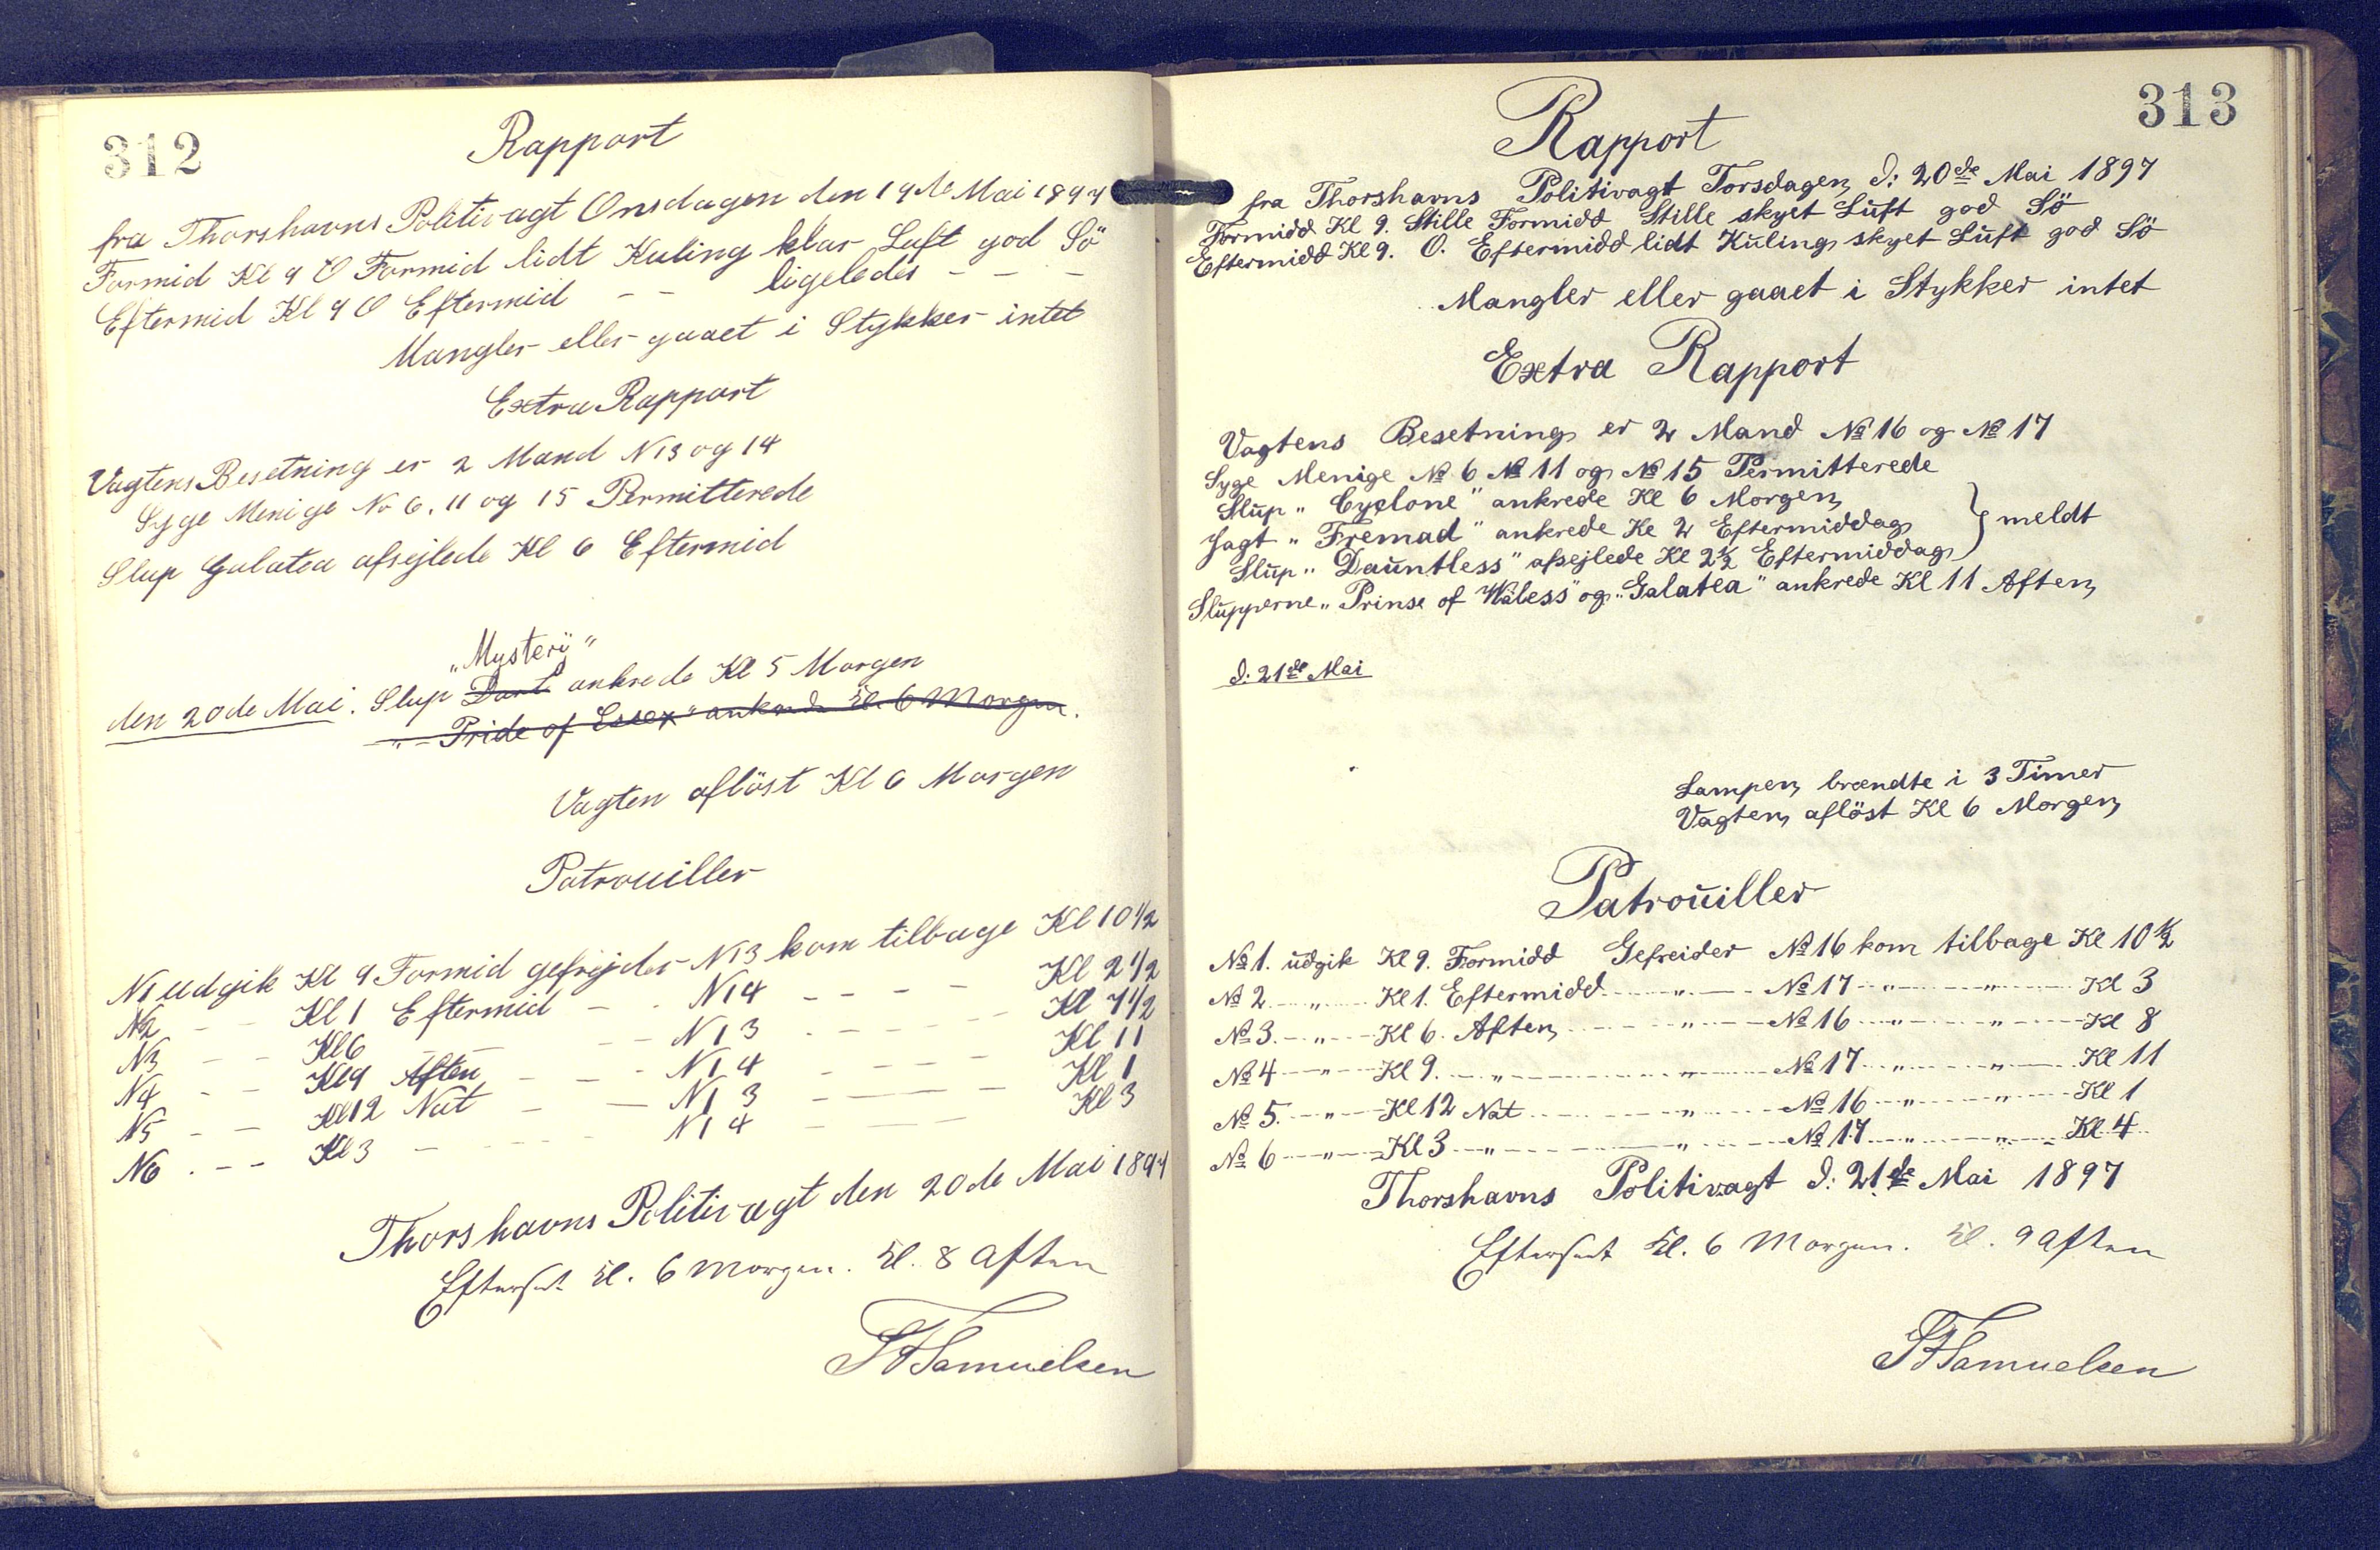 312
Rapport
fra Thorshavns Politivagt Onsdagen den 19de Mai 1897
Formid Kl 9 O Formid lidt Kuling klar Luft god Sö
Eftermid Kl 9 O Eftermid - - ligeledes - - -
Mangler eller gaaet i Stykker intet
Extra Rapport
Vagtens Besetning er 2 Mand N13 og 14
Syge Menige No 6, 11 og 15 Permitterede
Slup Galatea afsejlede Kl 6 Eftermid
„Mysterÿ“
den 20de Mai. Slup Dart ankrede Kl 5 Morgen
„ - Pride of Essex“ ankrede Kl. 6 Morgen.
Vagten aflöst Kl 6 Morgen
Patrouiller
N1 udgik Kl 9 Formid gefrejder N13 kom tilbage Kl 10 1/2
N2 - - Kl 1 Eftermid - - N14 - - - - Kl 2 1/2
N3 - - Kl6 - - - N13 - - - - Kl 7 1/2
N4 - - Kl9 Aften - - - N14 - - - - Kl 11
N5 - - Kl12 Nat - - N13 - - - - Kl 1
N6 - - Kl3 - - - - N14 - - - Kl3
Thorshavns Politivagt den 20de Mai 1897
Efterset Kl. 6 Morgen. Kl. 8 Aften
Samuelsen
313
Rapport
fra Thorshavns Politivagt Torsdagen d: 20de Mai 1897
Formidd Kl 9. Stille Formidd Stille skyet Luft god Sö
Eftermidd Kl 9. O. Eftermidd lidt Kuling skyet Luft god Sö
Mangler eller gaaet i Stykker intet
Extra Rapport
Vagtens Besetning er 2 Mand № 16 og № 17
Syge Menige № 6 № 11 og № 15 Permitterede
Slup „Cyclone“ ankrede Kl 6 Morgen
Jagt „Fremad“ ankrede Kl 2 Eftermiddag } meldt
Slup „Dauntless“ afsejlede Kl 2½ Eftermiddag
Slupperne „Prinse of Waless“ og „Galatea“ ankrede Kl 11 Aften
d: 21de Mai
Lampen brændte i 3 Timer
Vagten aflöst Kl 6 Morgen
Patrouiller
№ 1. udgik Kl 9. Formidd Gefreider № 16 kom tilbage Kl 10 ½
№ 2 „ Kl 1. Eftermidd „ № 17 „ „ Kl 3
№ 3. „ Kl 6. Aften „ № 16 „ „ Kl 8
№ 4 „ Kl 9. „ „ № 17 „ „ Kl 11
№ 5. „ Kl 12 Nat „ № 16 „ „ Kl 1
№ 6 „ Kl 3 „ „ № 17 „ „ Kl 4
Thorshavns Politivagt d: 21de Mai 1897
Efterset Kl. 6 Morgen. Kl. 9 Aften
Samuelsen